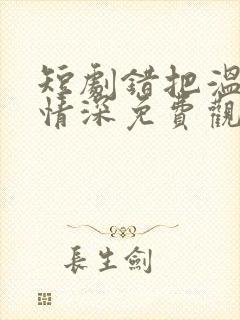 短劇錯把溫
情深免費觀
長生劍